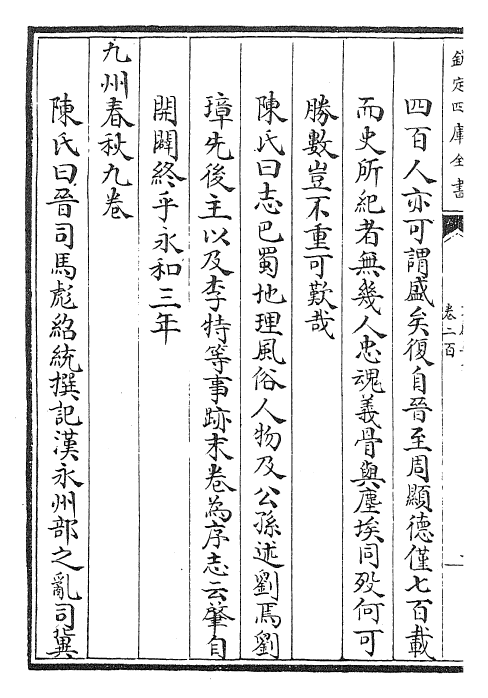 欽定四庫全書
卷二百
四百人亦可謂盛矣復自晉至周顯德僅七百載
而史所紀者無幾人忠魂義骨與塵埃同歿何可
勝數豈不重可歎哉
陳氏曰志巴蜀地理風俗人物及公孫述劉焉劉
璋先後主以及李特等事跡末卷為序志云肇自
開闢終乎永和三年
九州春秋九卷
陳氏曰晉司馬彪紹統撰記漢永州部之亂司冀